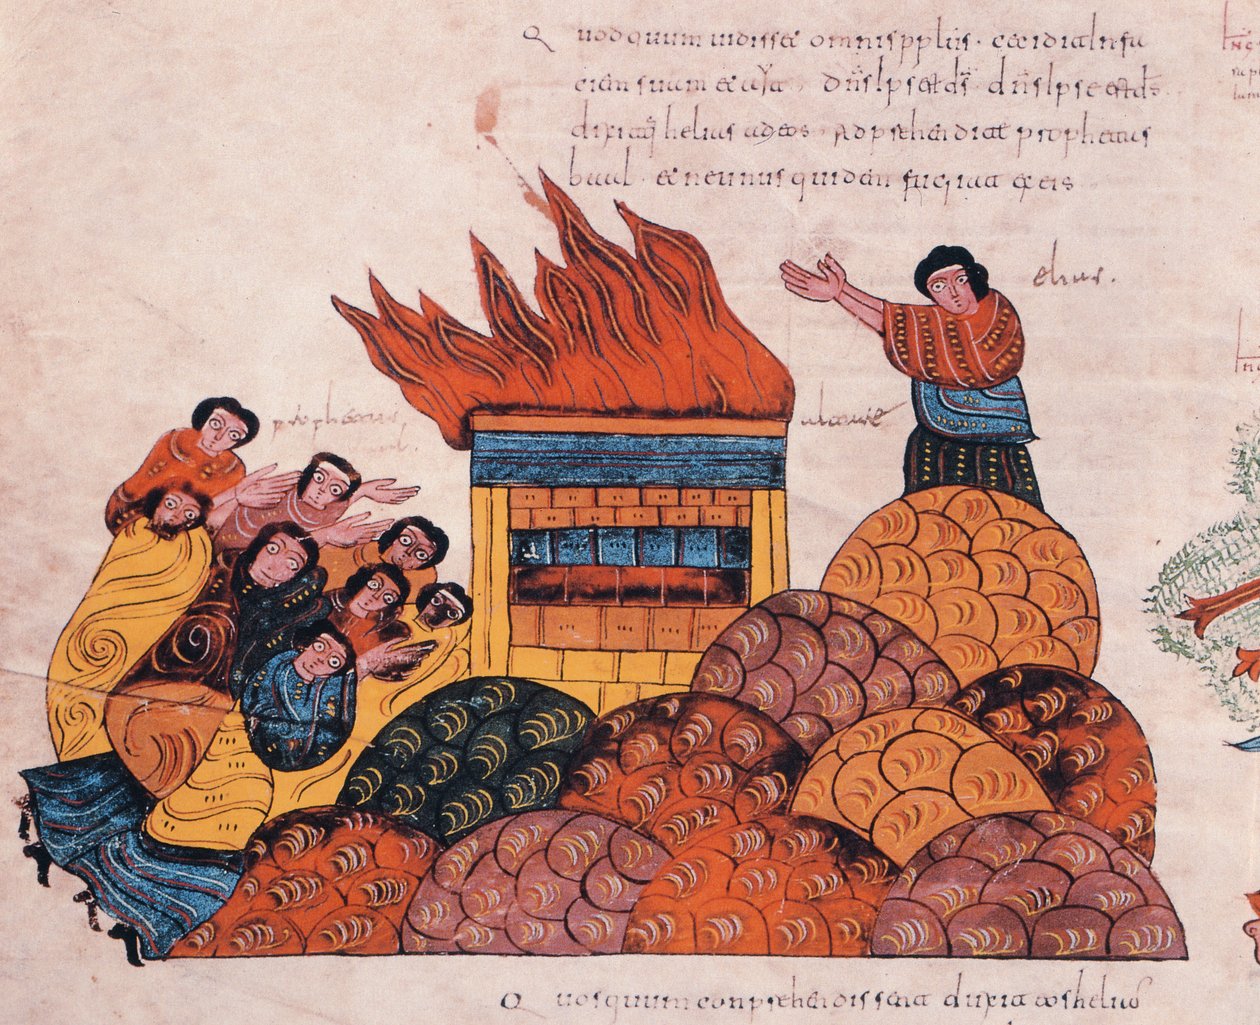 Quod quum uidisset omnis ppls. cecidit in fa
ciem suam et ayt, dns ipse est ds. dns ipse est ds.
dixitq helias ad eos. Adprehendite prophetas
baal. et ne unus quidem fugiat ex eis
elias.
prophetas
altare
Quos quum conprehendissent duxit eos helias